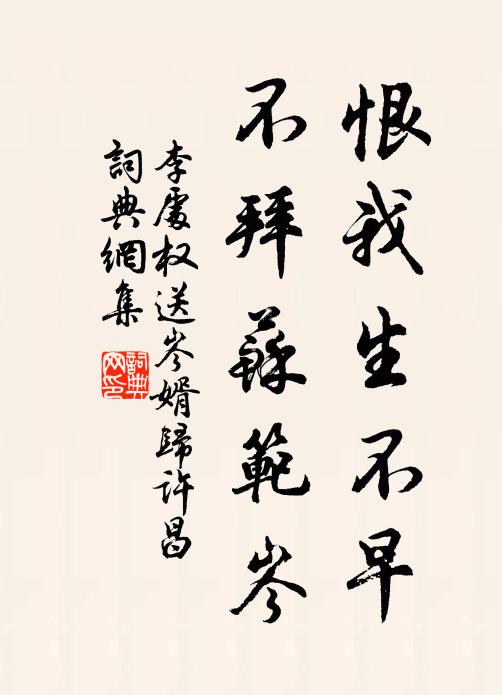 恨我生不早
不拜蘇範岑
李處权送岑婿歸許昌
詞典網集
詞典网印